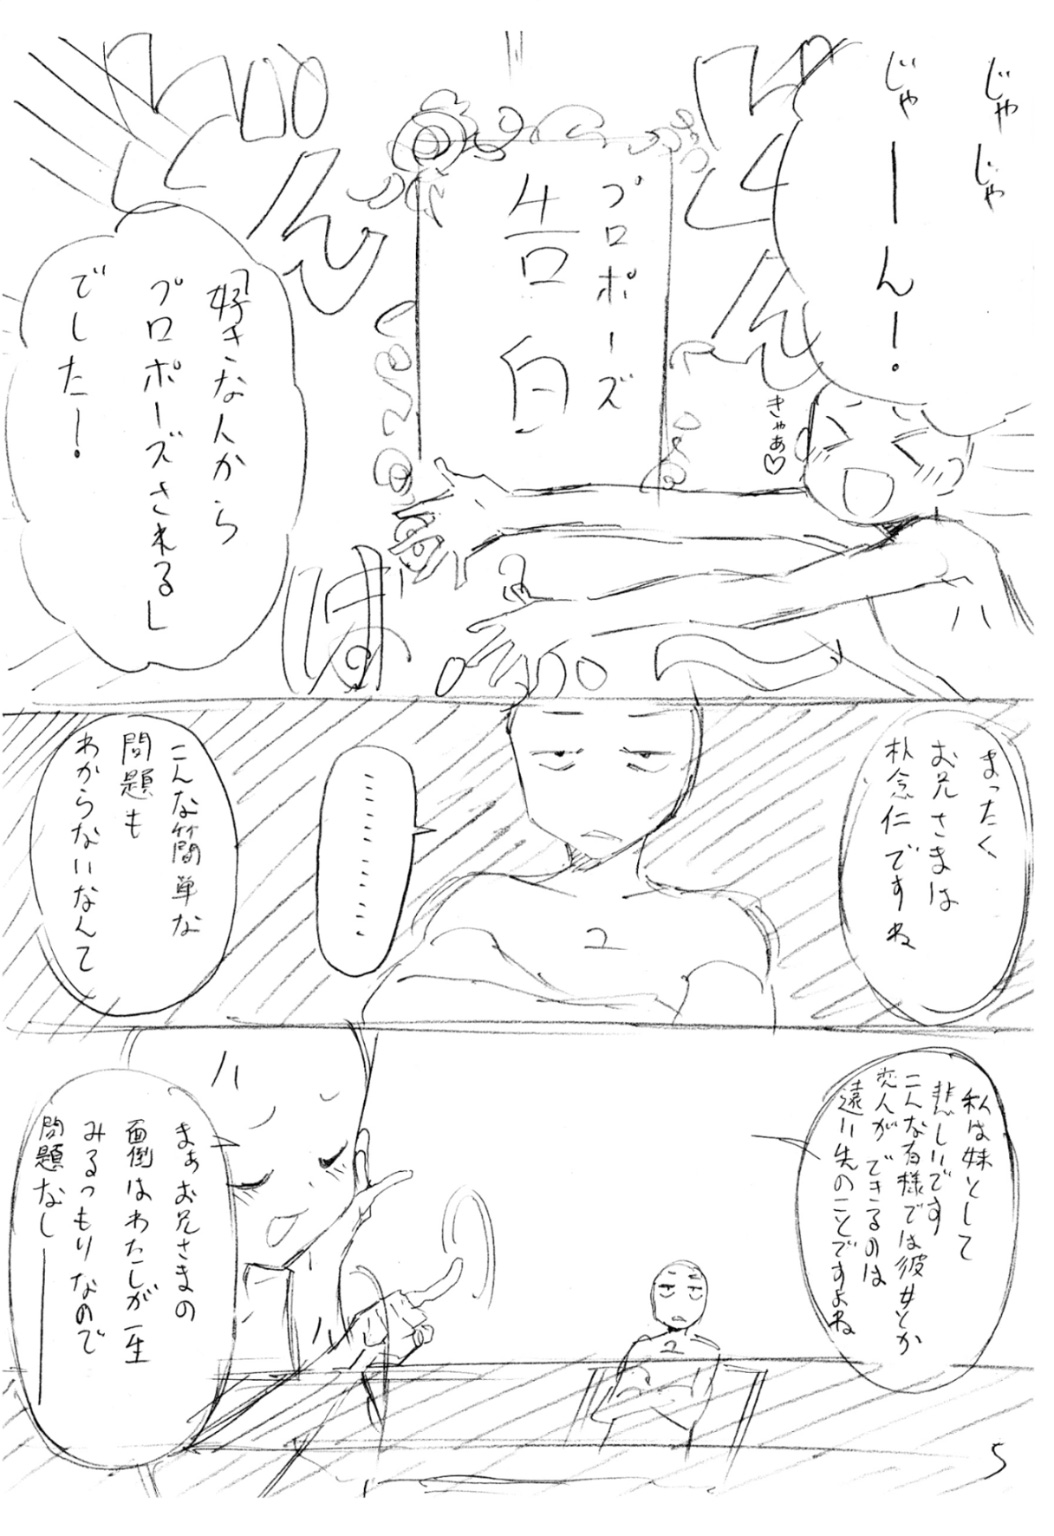 じゃじゃ
じゃーん！
きゃあ♡
プロポーズ
告白
好きな人から
プロポーズされる」
でしたー！
ぱ
まったく
お兄さまは
朴念仁ですね
………
こんな簡単な
問題も
わからないなんて
2
私は妹として
悲しいです
こんな有様では彼女とか
恋人ができるのは
遠い先のことですよね
まぁお兄さまの
面倒はわたしが一生
みるつもりなので
問題なし――
2
5